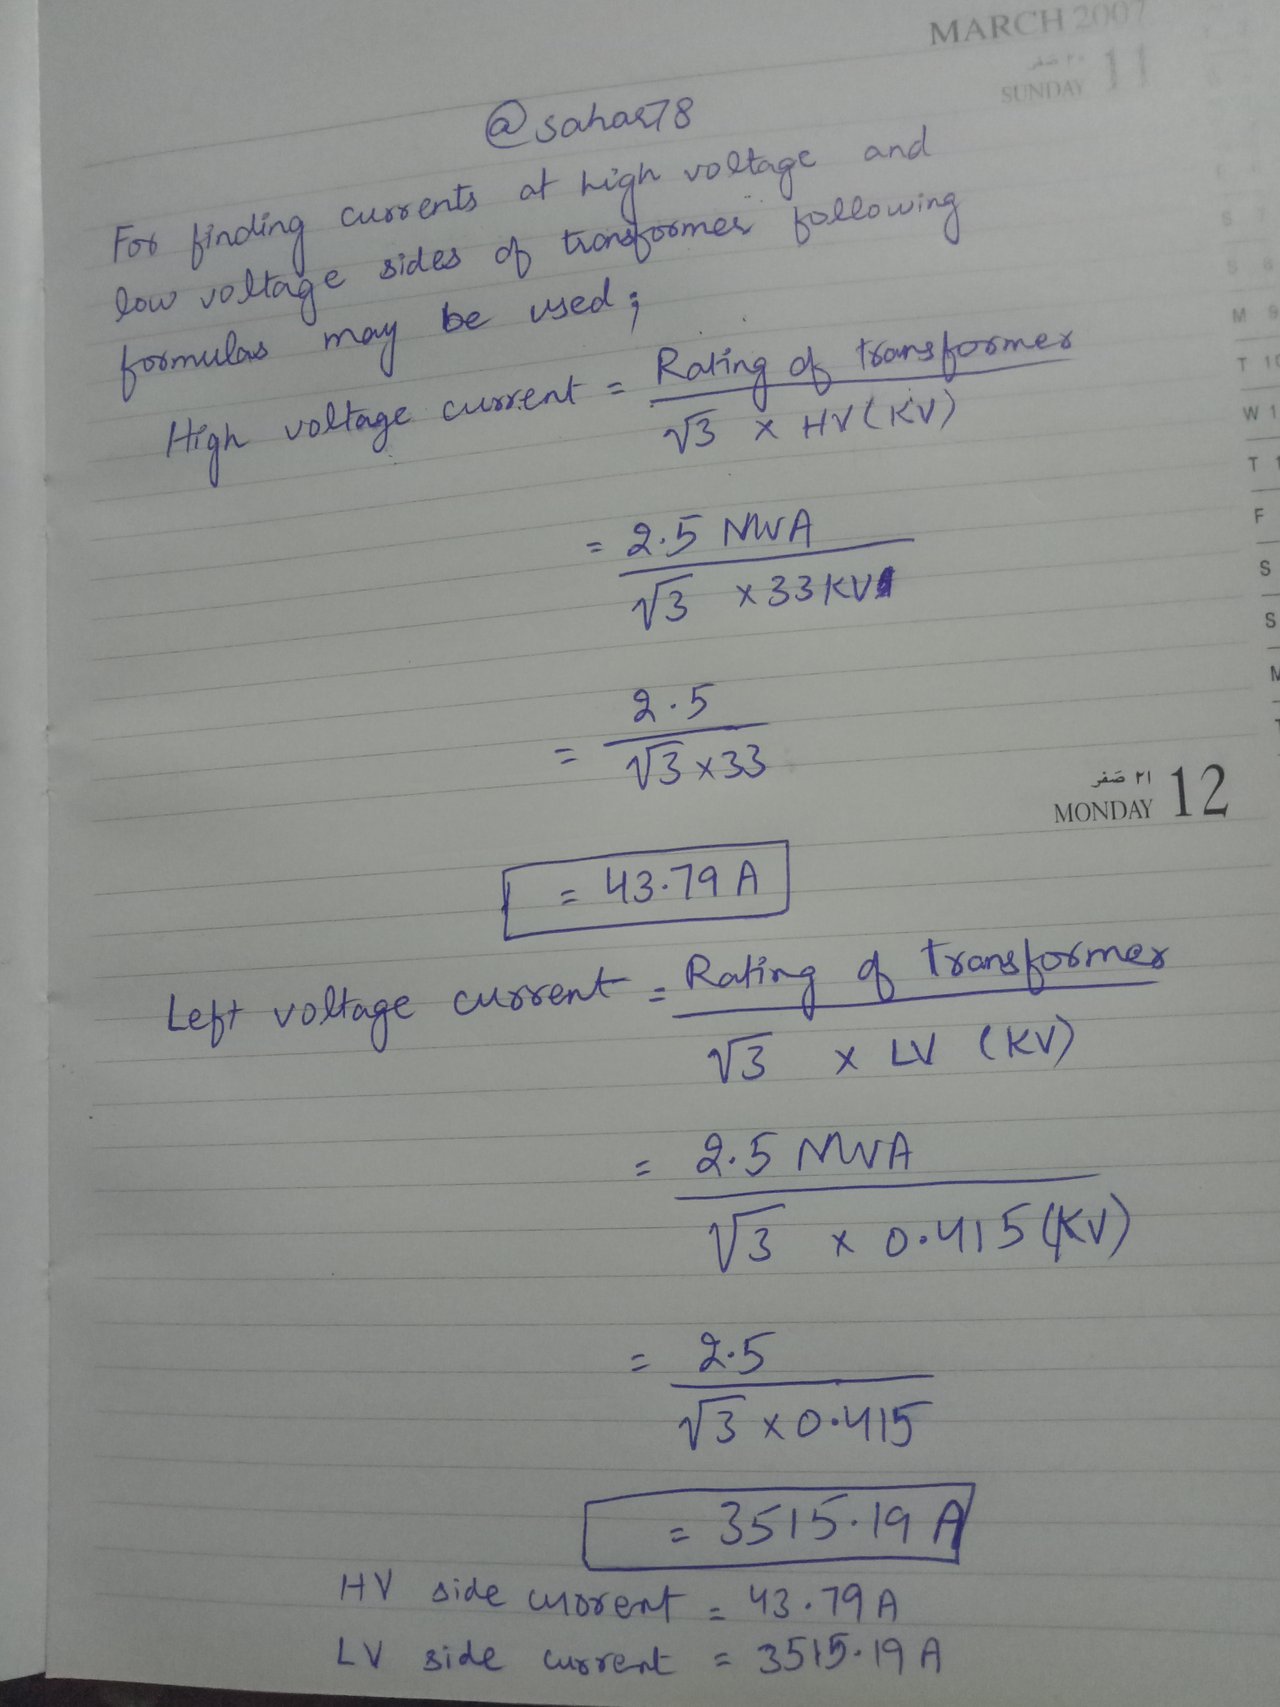 MARCH 2007
٢٠ صفر
SUNDAY 11
@sahar78
For finding currents at high voltage and
low voltage sides of transformer following
formulas may be used;
High voltage current = Rating of transformer
√3 × HV (KV)
= 2.5 MVA
√3 × 33 KV
= 2.5
√3 × 33
٢١ صفر
MONDAY 12
= 43.79 A
Left voltage current = Rating of transformer
√3 × LV (KV)
= 2.5 MVA
√3 × 0.415 (KV)
= 2.5
√3 × 0.415
= 3515.19 A
HV side current = 43.79 A
LV side current = 3515.19 A
S
S
M
T 10
W 1
T 1
F
S
S
M